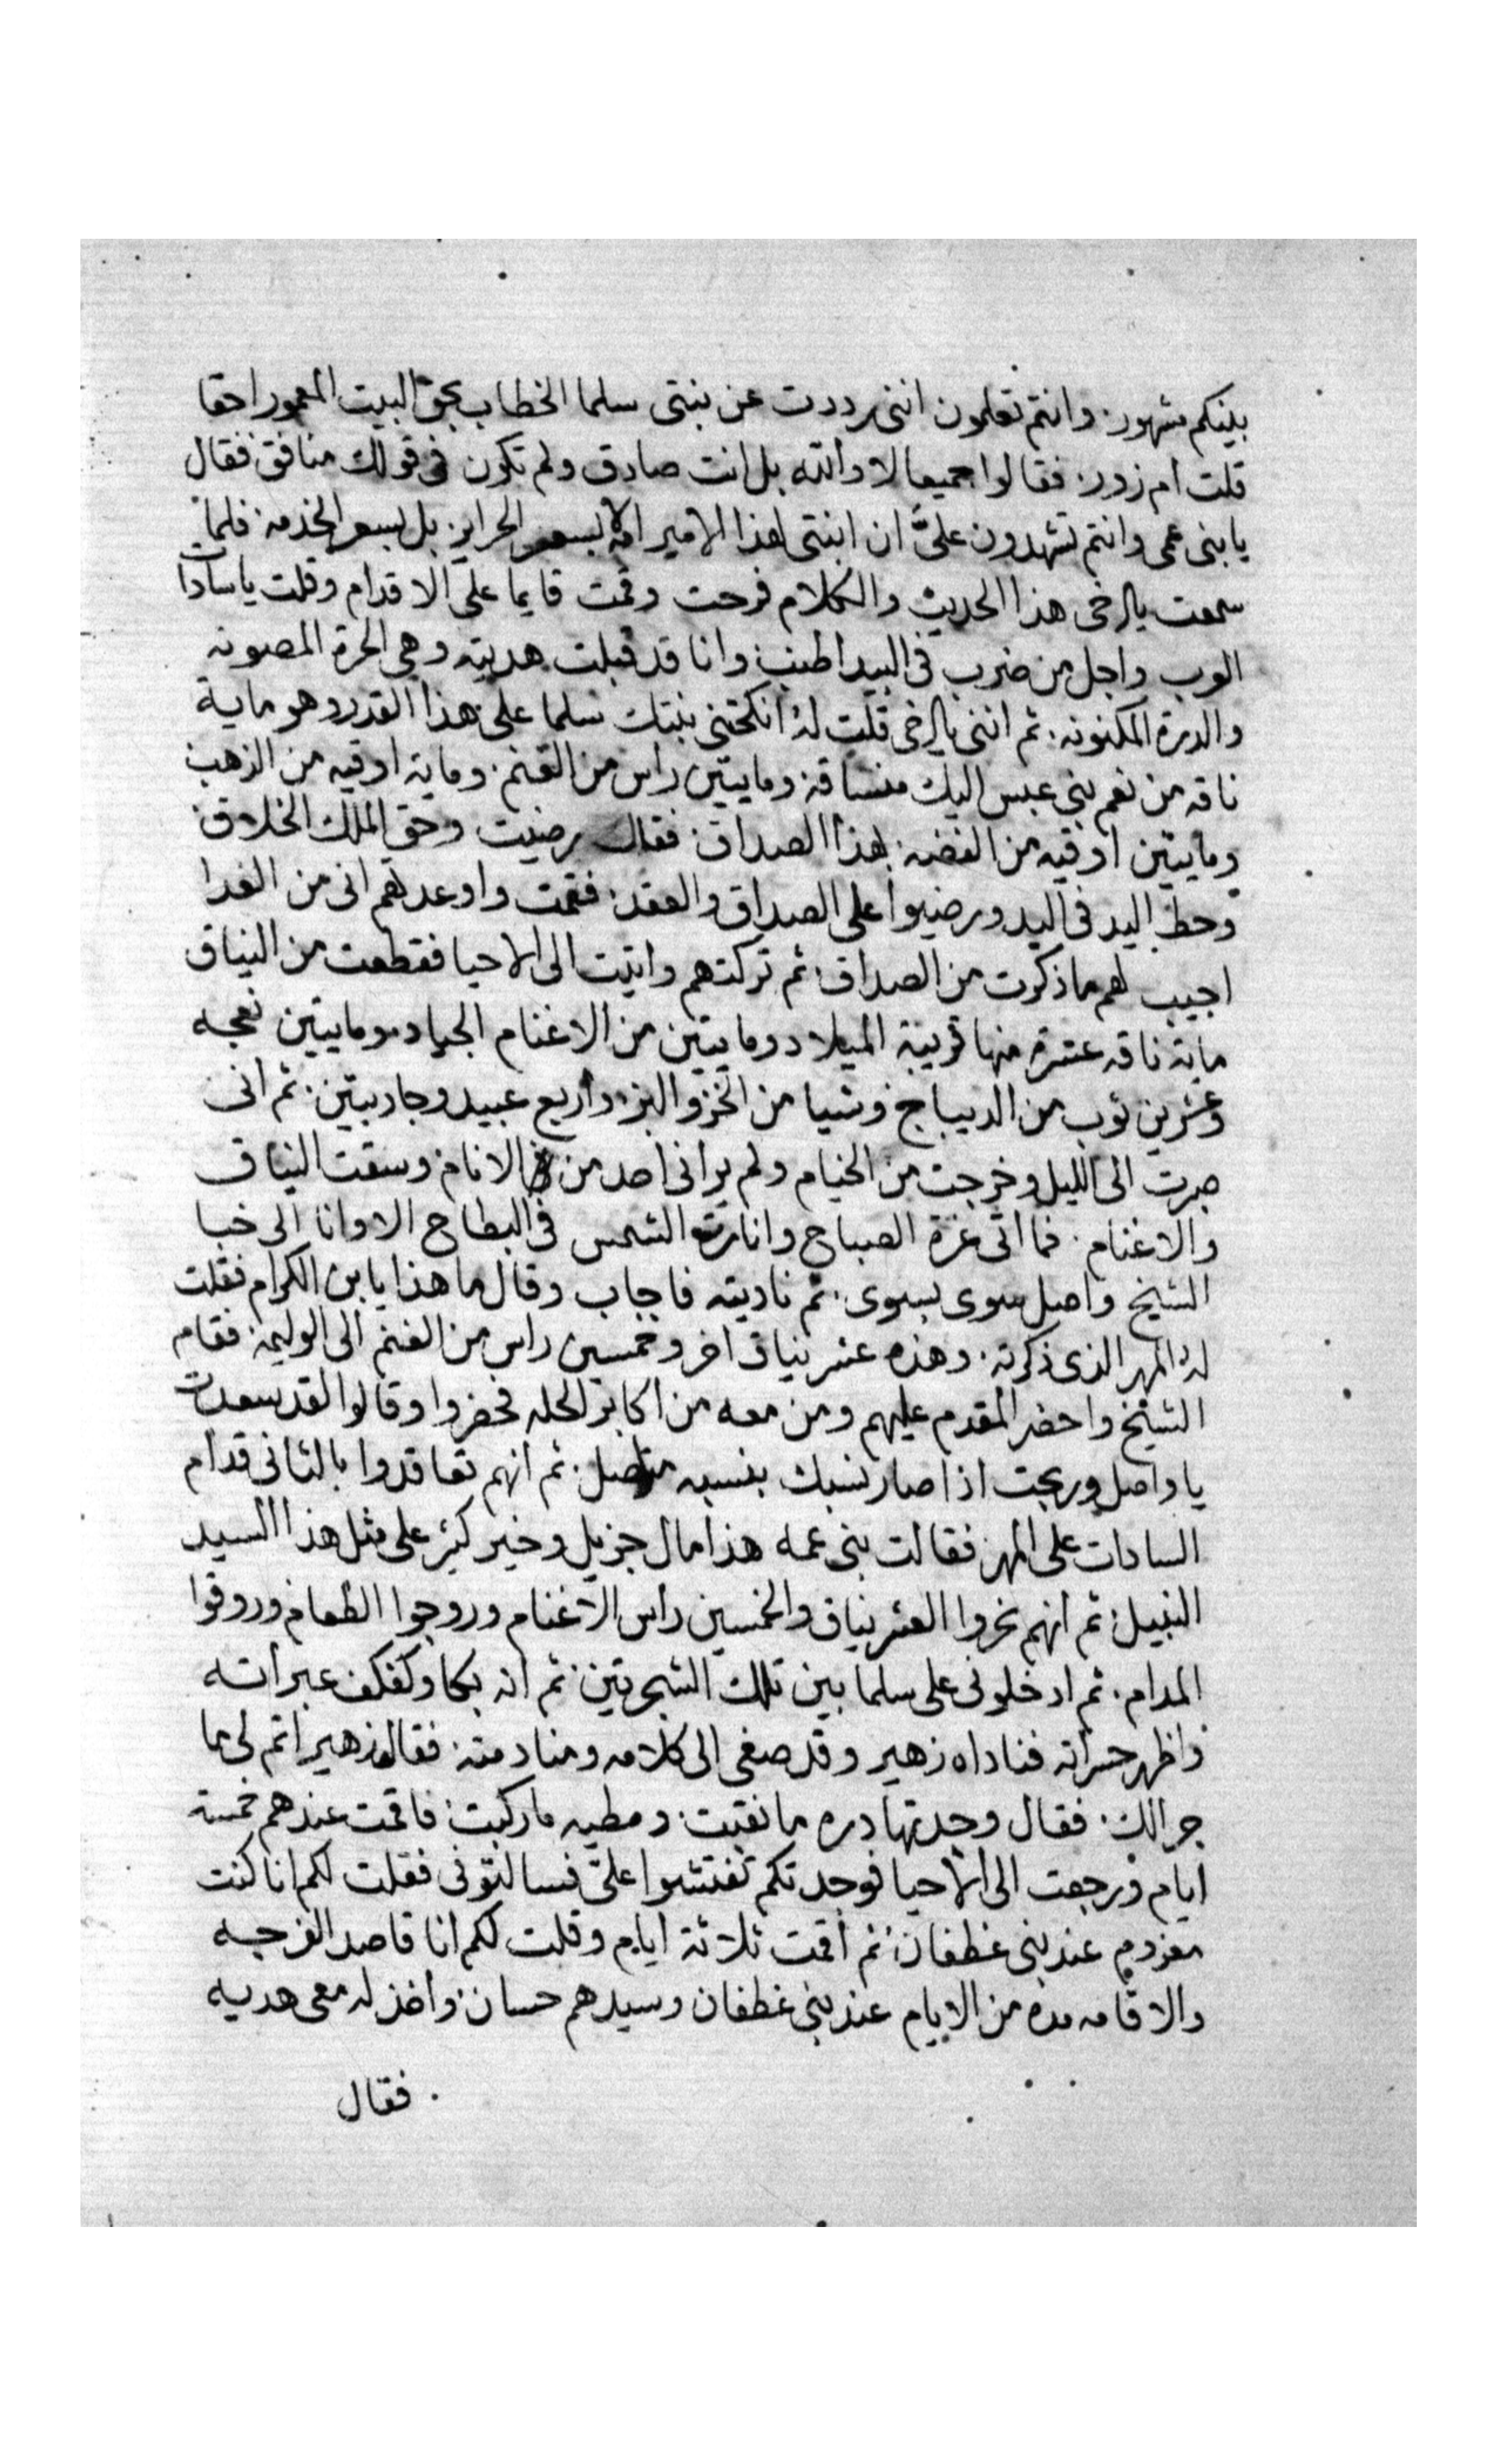 بينكم مشهور. وانتم تعلمون اننى رددت عن بنتى سلما الخطاب بحق البيت المعمور احقا
قلت ام زور. فقالوا جميعا لا والله بل انت صادق ولم تكون فى قولك منافق فقال
يا بنى عمى وانتم تشهدون علىّ ان ابنتى لهذا الامير امة لا بسعر الحراير بل بسعر الخدمه. فلما
سمعت يا اخى هذا الحديث والكلام فرحت وقمت قايما على الاقدام وقلت يا سادات
العرب واجل من ضرب فى البيدا طنب وانا قد قبلت هديته وهى الحرة المصونه
والدرة المكنونه. ثم اننى يا اخى قلت له انكحتنى بنتك سلما على هذا القدر وهو ماية
ناقه من نعم بنى عبس اليك منساقه وماييتين راس من الغنم. وماية اوقيه من الذهب
وماييتين اوقيه من الفضه. لهذا الصداق. فقال رضيت وحق الملك الخلاق
وحط اليد فى اليد ورضيوا على الصداق والعقد. فقمت واوعدتهم انى من الغدا
اجيب لهم ما ذكرت من الصداق. ثم تركتهم واتيت الى الاحيا فقطعت من النياق
ماية ناقه عشرة منها قريبة الميلاد وماييتين من الاغنام الجياد وماييتين نعجه
وعشرين ثوب من الديباج وشيا من الخز والبز. واربع عبيد وجاريتين. ثم انى
صبرت الى الليل وخرجت من الخيام ولم يرانى احد من الانام وسقت النياق
والاغنام. فما اتى غرة الصباح وانارت الشمس فى البطاح الا وانا الى خبا
الشيخ واصل سوى بسوى. ثم ناديته فاجاب وقال ما هذا يا بن الكرام فقلت
له المهر الذى ذكرته. وهذه عشر نياق اخر وخمسين راس من الغنم الى الوليمه فقام
الشيخ واحضر المقدم عليهم ومن معه من اكابر الحله فحضروا وقالوا لقد سعدت
يا واصل وربحت اذا صار نسبك بنسبه متاصل. ثم انهم تعاقدوا بالثانى قدام
السادات على المهر فقالت بنى عمه هذا مال جزيل وخير كثير على مثل هذا السيد
النبيل. ثم انهم نحروا العشر نياق والخمسين راس الاغنام وروجوا الطعام وروقوا
المدام. ثم ادخلونى على سلما بين تلك الشجرتين. ثم انه بكا وكفكف عبراته
واظهر حسراته فناداه زهير وقد صغى الى كلامه ومنادمته. فقال زهير اتم لى ما
جرالك. فقال وجدتها دره ما نقبت. ومطيه ما ركبت. فاقمت عندهم خمسة
ايام ورجعت الى الاحيا فوجدتكم تفتشوا علىّ فسالتونى فقلت لكم انا كنت
معزوم عند بنى غطفان. ثم اقمت ثلاثة ايام وقلت لكم انا قاصد الفرجه
والاقامه مده من الايام عند بنى غطفان وسيدهم حسان. واخذ له معى هديه
فقال